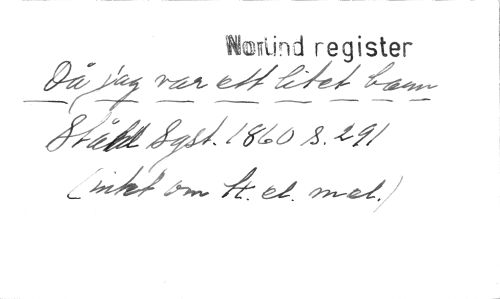 Norlind register
Då jag var ett litet barn
Ståhl Sgst. 1860 s. 291
(intet om t. el. mel.)